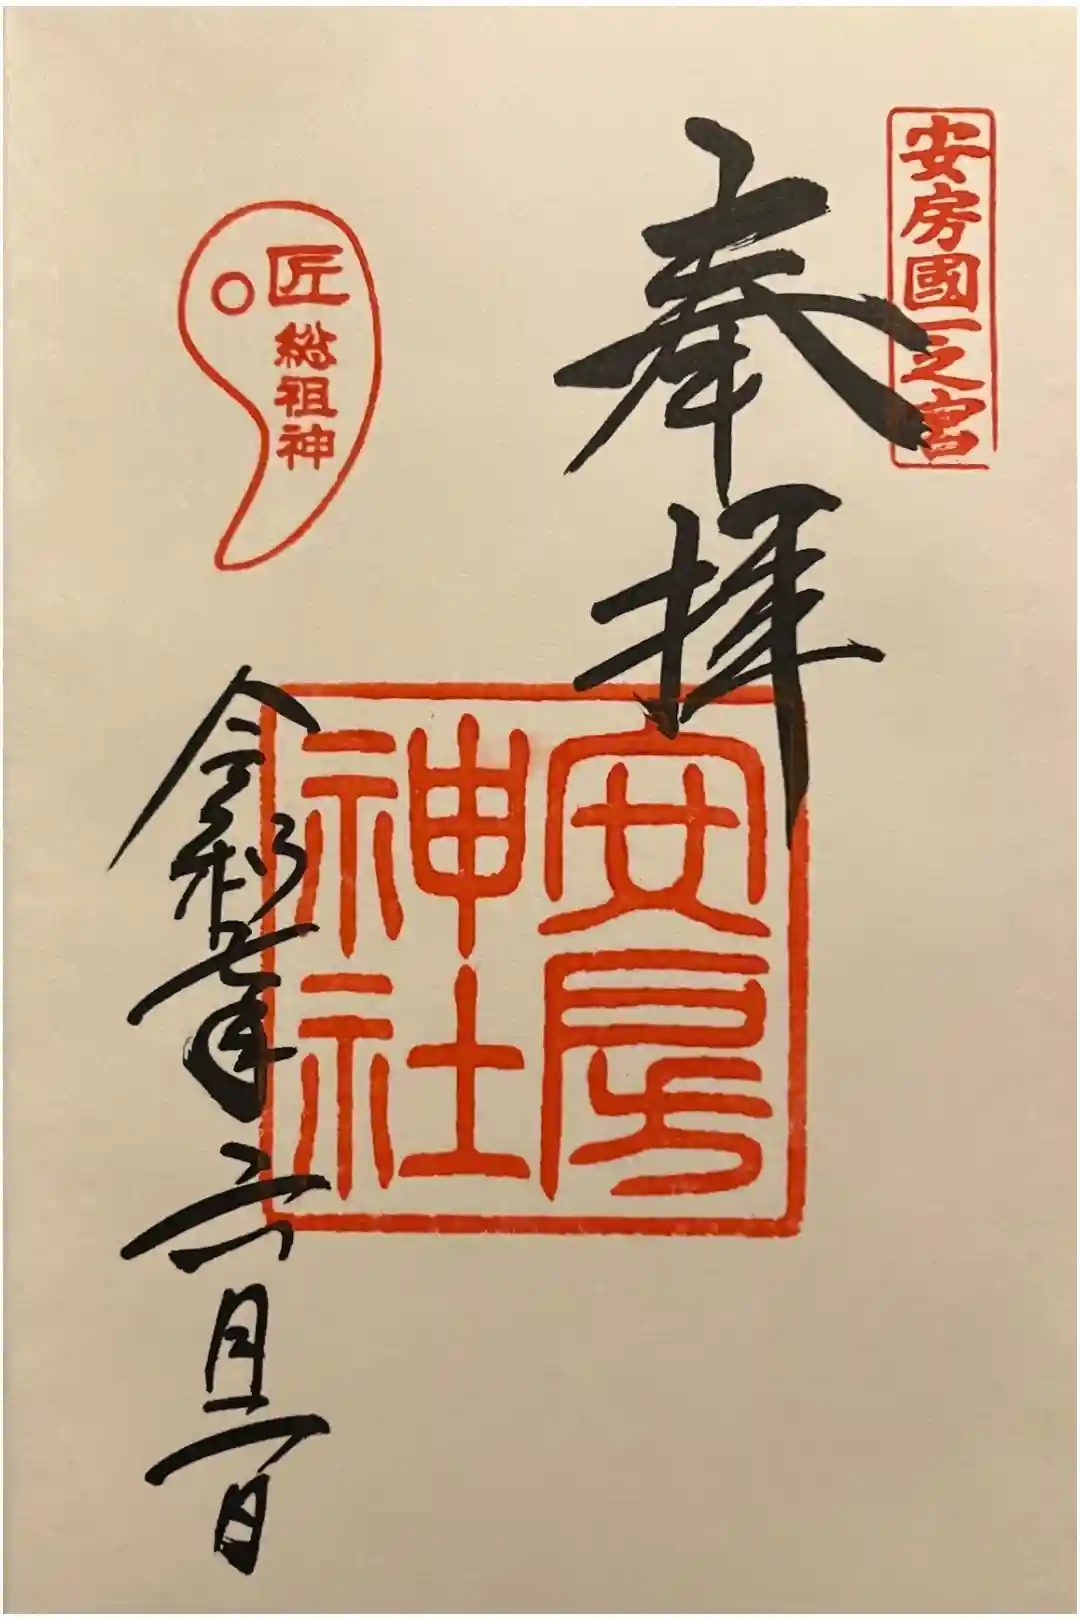 安房國一之宮
奉拝
安房
神社
匠 総祖神
令和七年六月二日